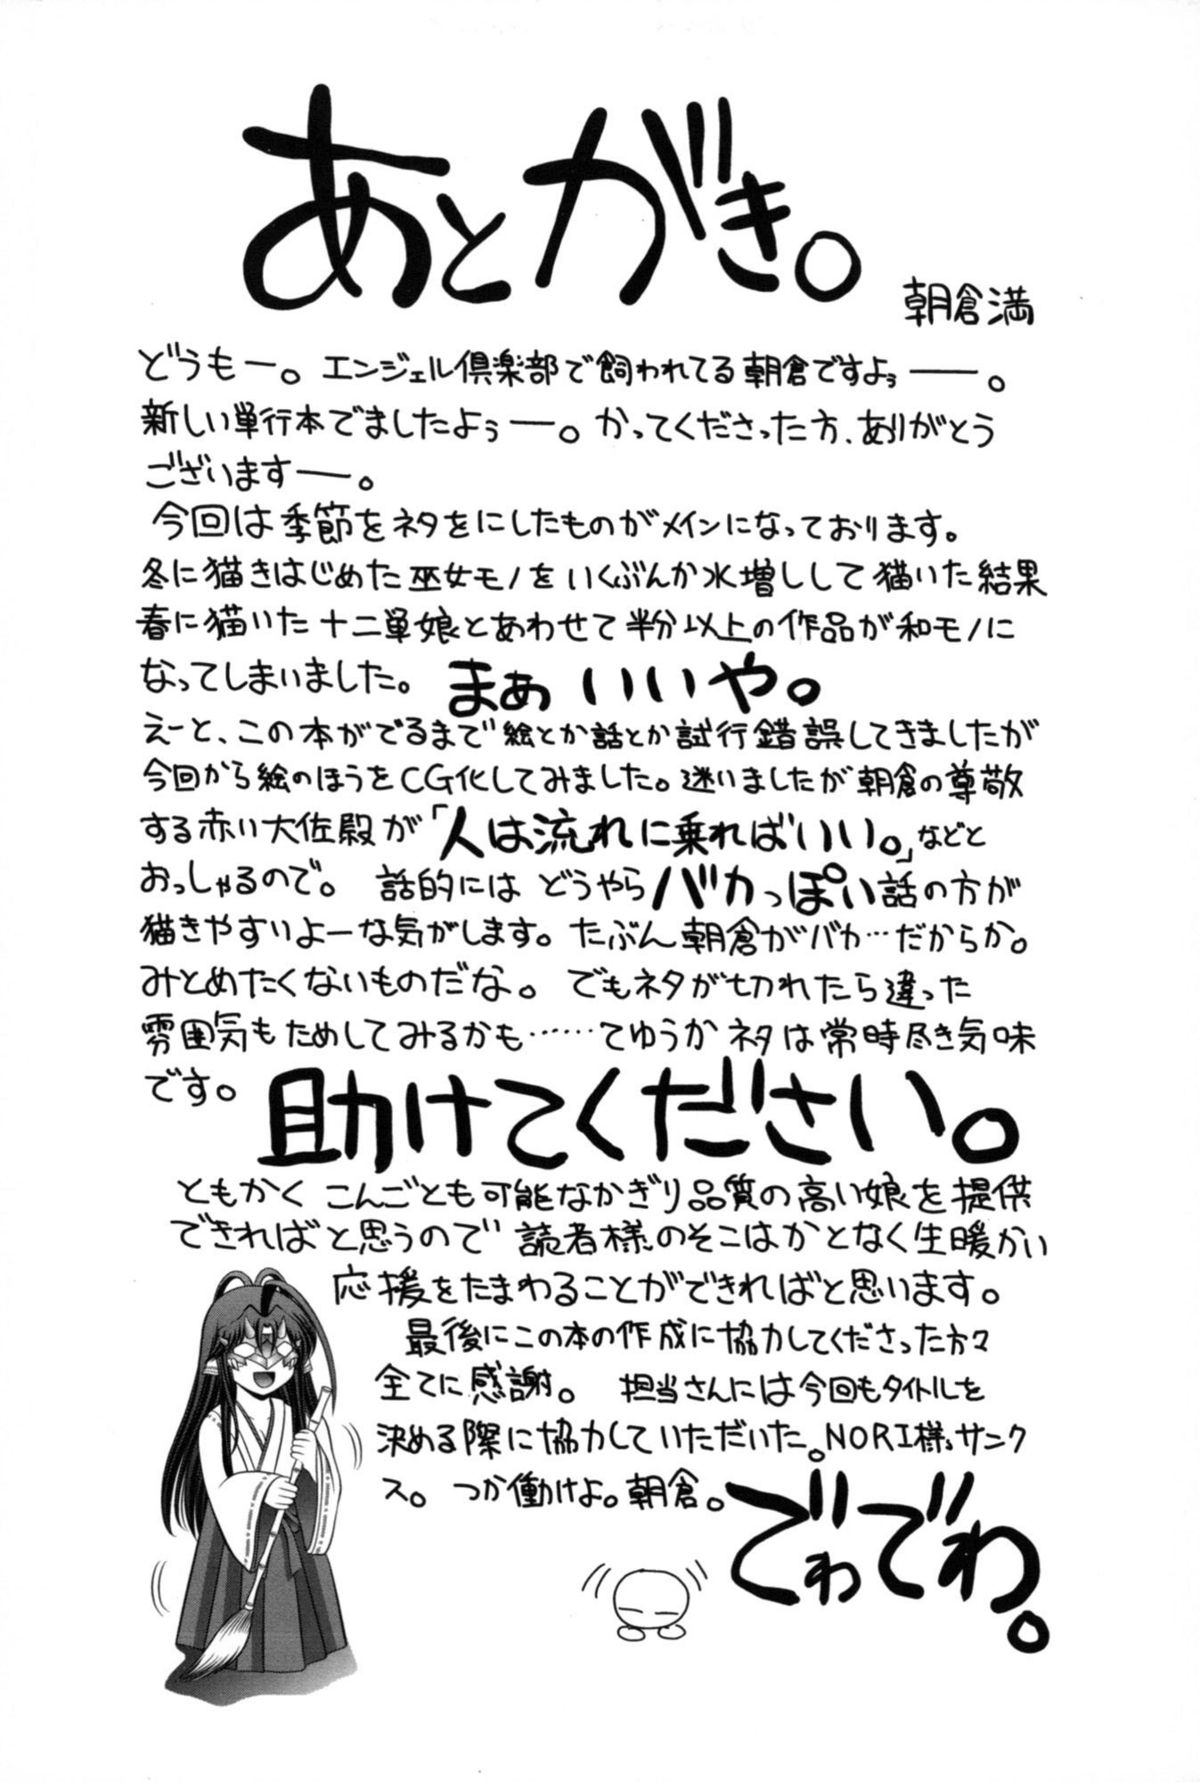 あとがき。
朝倉満
どうもー。エンジェル倶楽部で飼われてる朝倉ですよぅ――。
新しい単行本でましたよぅー。かってくださった方、ありがとう
ございますー。
今回は季節をネタをにしたものがメインになっております。
冬に猫きはじめた巫女モノをいくぶんか水増しして猫いた結果
春に猫いた十二単娘とあわせて半分以上の作品が和モノに
なってしまいました。まぁいいや。
えーと、この本がでるまで絵とか話とか試行錯誤してきましたが
今回から絵のほうをCG化してみました。迷いましたが朝倉の尊敬
する赤い大佐殿が「人は流れに乗ればいい。」などと
おっしゃるので。 話的には どうやらバカっぽい話の方が
猫きやすいよーな気がします。たぶん朝倉がバカ…だからか。
みとめたくないものだな。 でもネタが切れたら違った
雰囲気もためしてみるかも……てゆうかネタは常時尽き気味
です。助けてください。
ともかく こんごとも可能なかぎり品質の高い娘を提供
できればと思うので 読者様のそこはかとなく生暖かい
応援をたまわることができればと思います。
最後にこの本の作成に協力してくださった方々
全てに感謝。 担当さんには今回もタイトルを
決める際に協力していただいた。NORI様、サンク
ス。 つか働けよ。朝倉。
でわでわ。